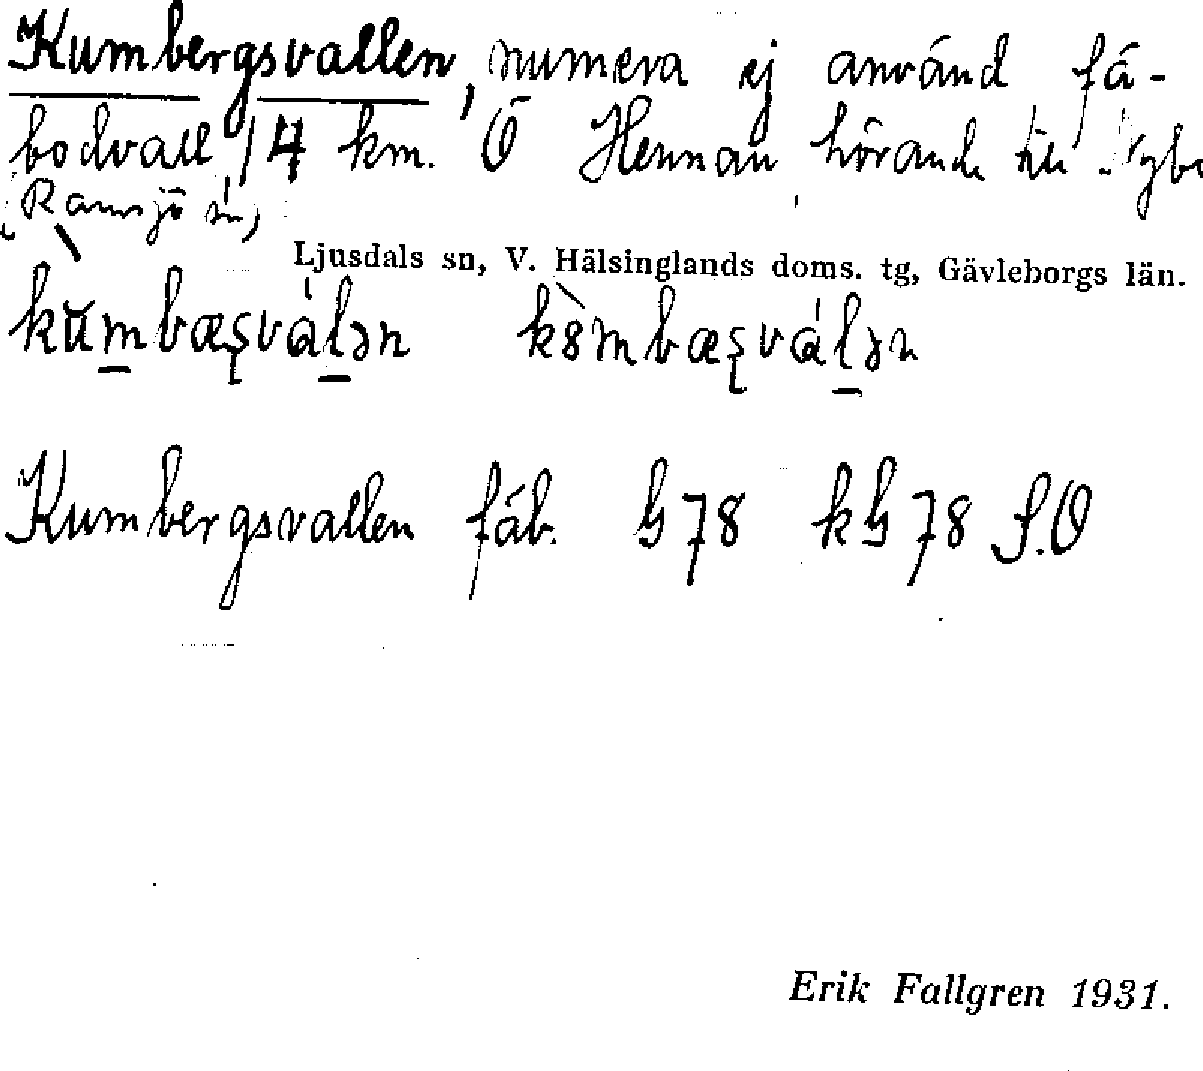 Kumbergsvallen, numera ej använd fä-
bodvall, 14 km. Ö Hennan hörande till Nybo
(Ramsjö sn)
Ljusdals sn, V. Hälsinglands doms. tg, Gävleborgs län.
Kumbergsvallen fäb. G 78 kG 78 S.O
Erik Fallgren 1931.